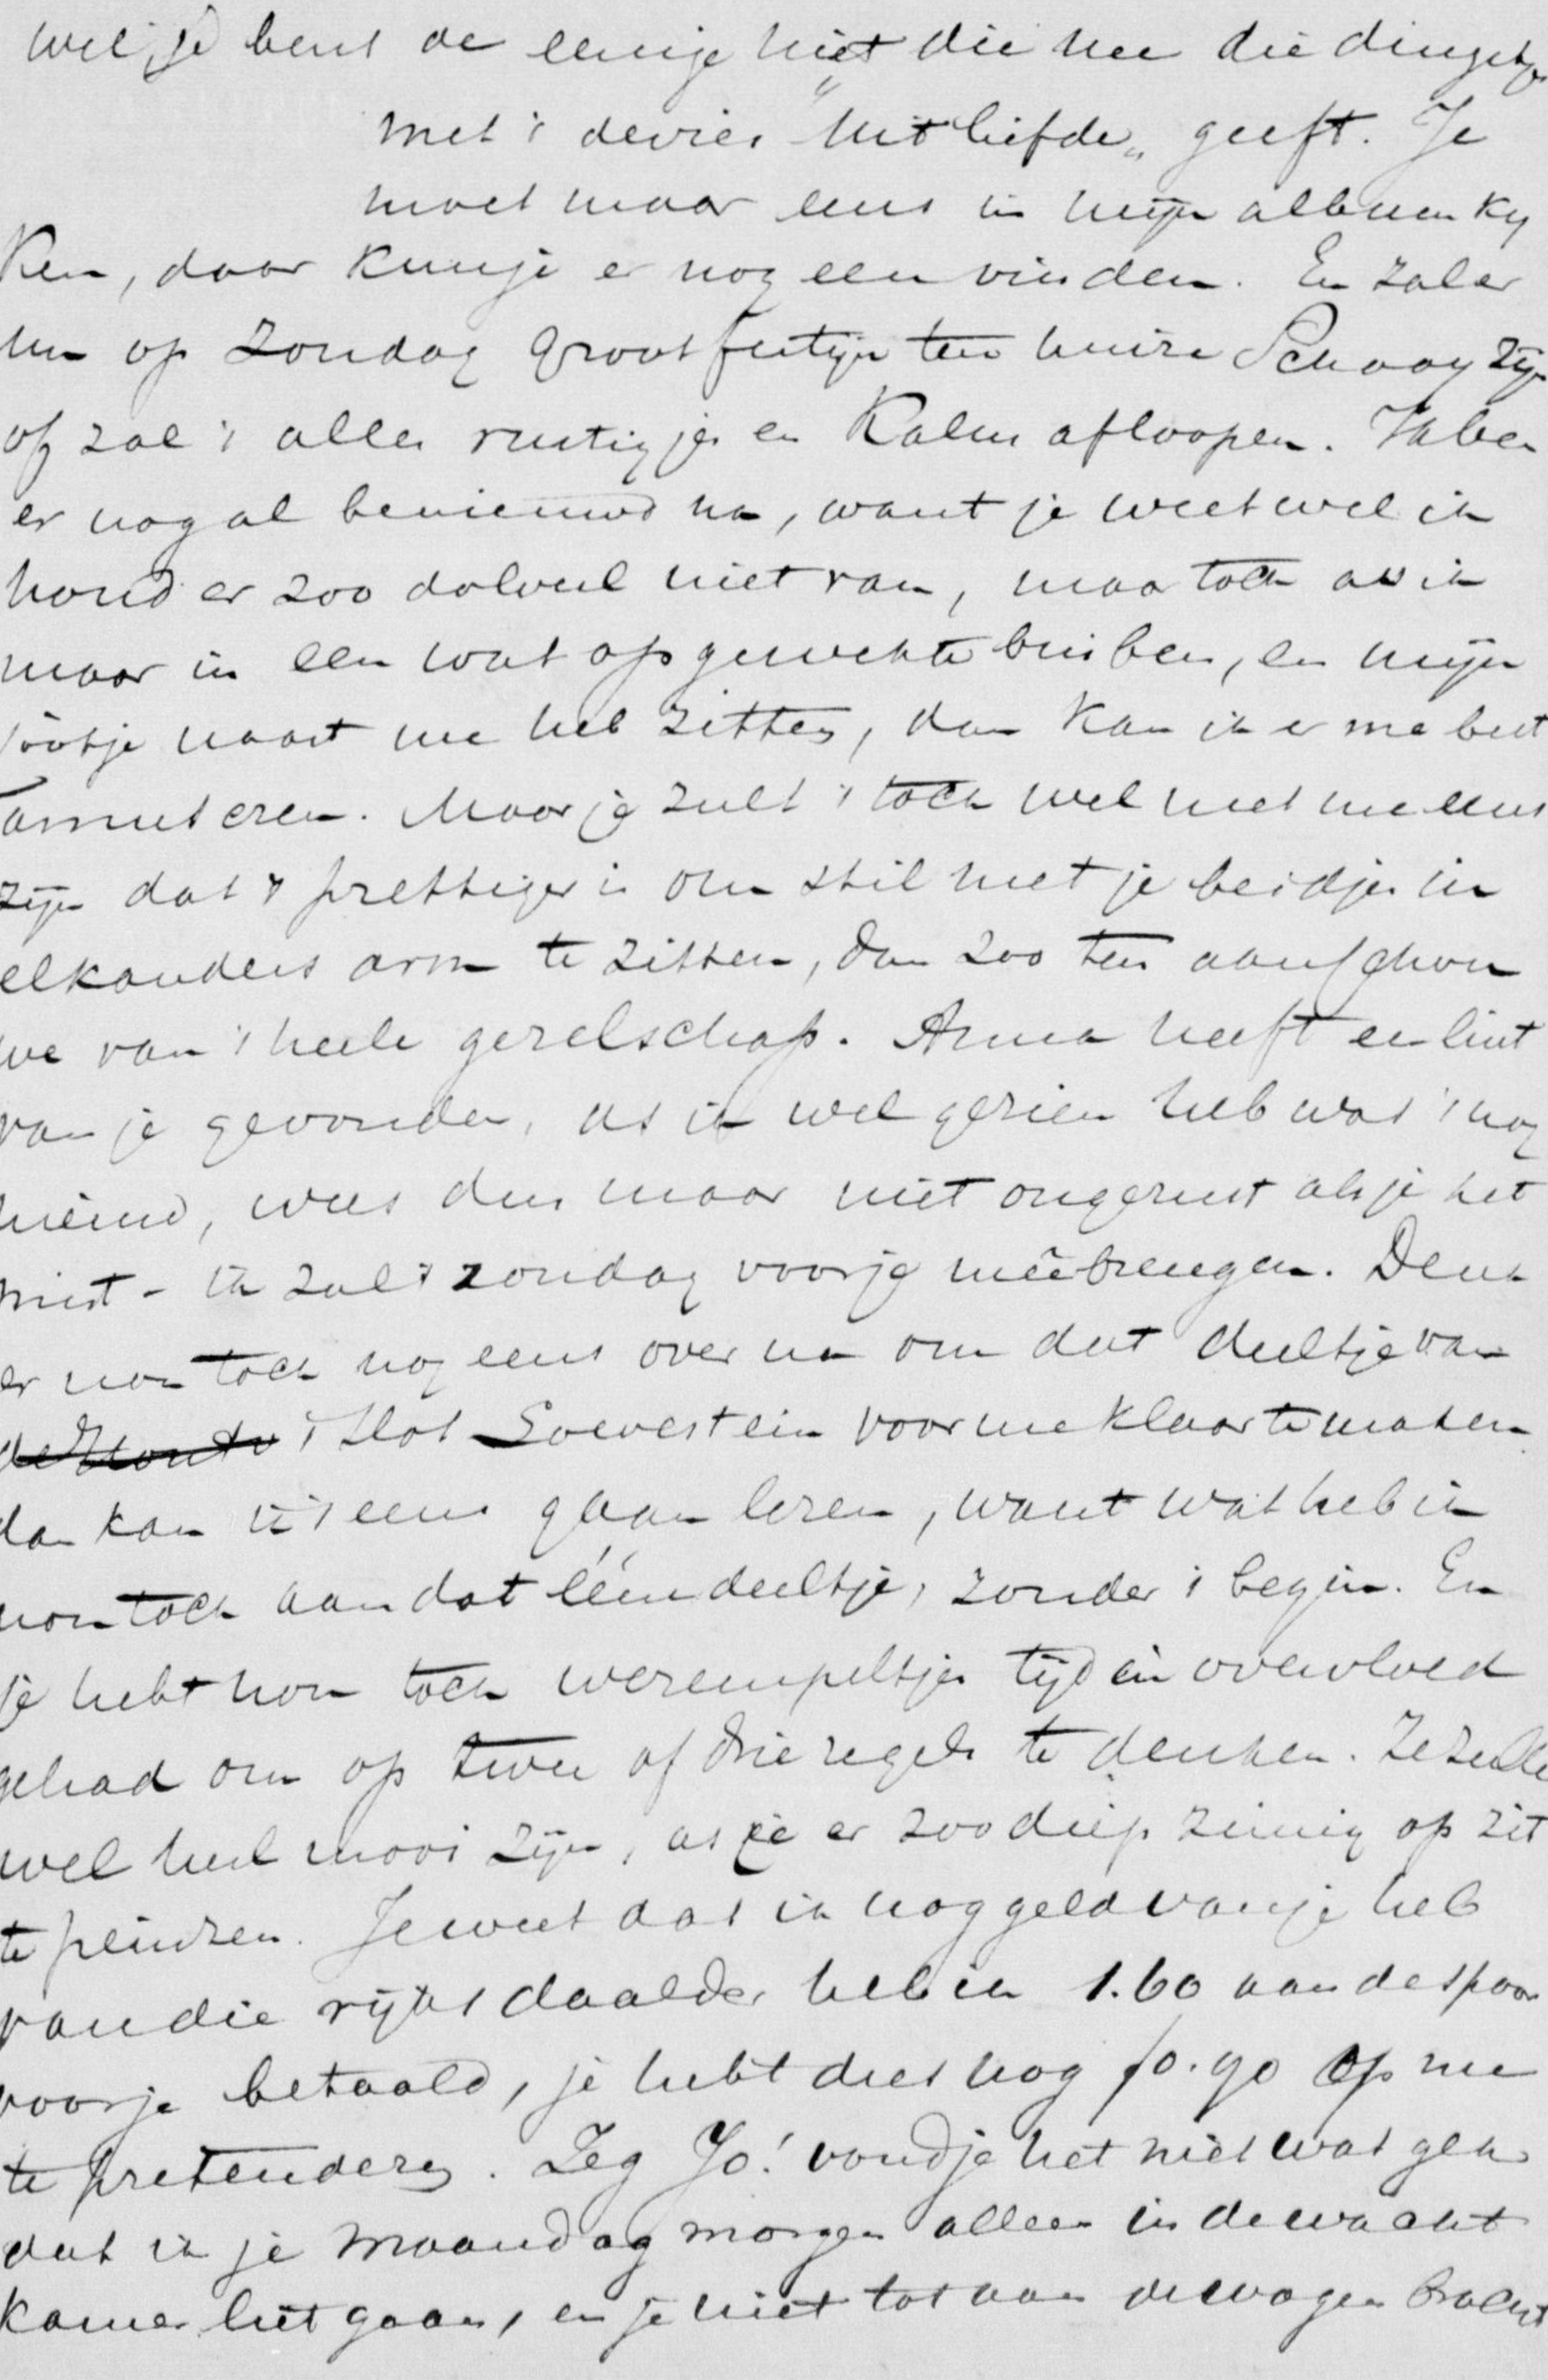 wel, je bent de eenige niet die me die dingetjes
met 't devies "Uit liefde" geeft. Je
moet maar eens in mijn album kij
ken, daar kun je er nog een vinden. En zal er
nu op Zondag groot festijn ten huize Schaay zijn
of zal 't alles rustigjes en kalm afloopen. Ik ben
er nogal benieuwd na, want je weet wel ik
houd er zoo dolveel niet van, maar toch as ik
maar in een wat opgewekte bui ben, en mijn
Jootje naast me heb zitten, dan kan ik er me best
amuseren. Maar je zult 't toch wel met me eens
zijn dat 't prettiger is om stil met je beidjes in
elkanders arm te zitten, dan zoo ten aanschou
we van 't heele gezelschap. Anna heeft een lint
van je gevonden, as ik wel gezien heb was 't nog
nieuw, wees dus maar niet ongerust als je het
mist - ik zal 't zondag voor je meêbrengen. Denk
er nou toch nog eens over na om dat deeltje van
't Slot Loevestein voor me klaar te maken
dan kan ik 't eens gaan lezen, want wat heb ik
nou toch aan dat ééne deeltje, zonder 't begin. En
je hebt nou toch werempeltjes tijd in overvloed
gehad om op twee of drie regels te denken. Ze zulle
wel heel mooi zijn, as je er zoo diepzinnig op zit
te peinzen. Je weet dat ik nog geld van je heb
van die rijksdaalder heb ik 1.60 aan de spoor
voor je betaald, je hebt dus nog f0.90 op me
te pretenderen. Zeg Jo! vond je het niet wat gek
dat ik je Maandag morgen alleen in de wacht
kamer liet gaan, en je niet tot aan de wagen bracht